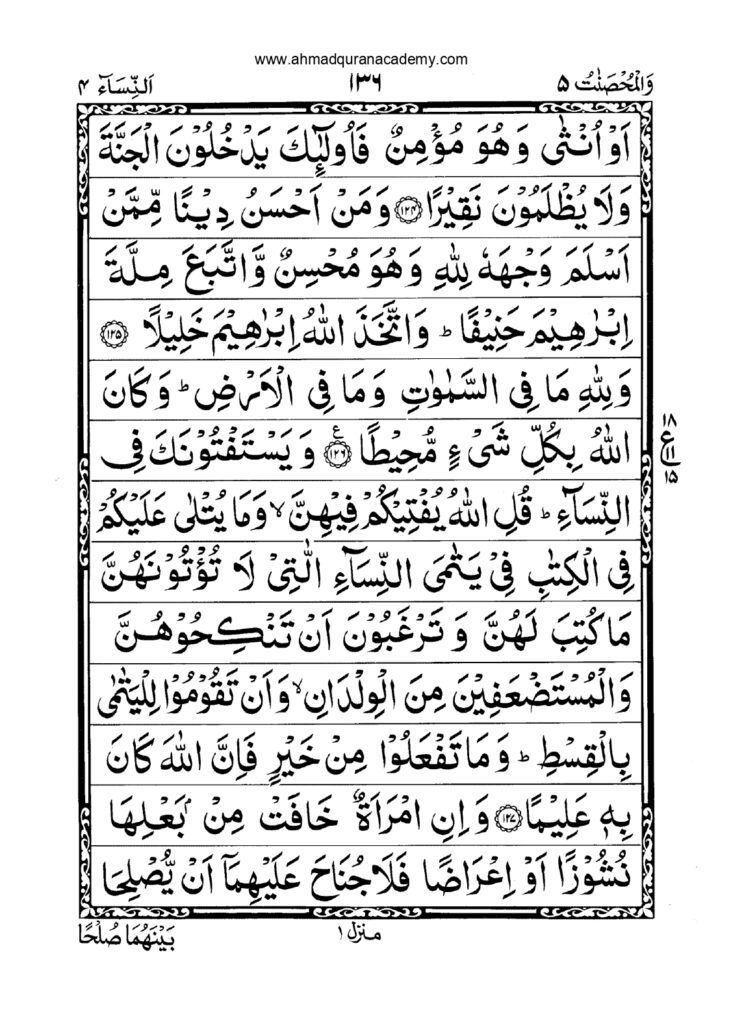 www.ahmadquranacademy.com
وَالْمُحْصَنٰتُ ۵ ۱۳۶ اَلنِّسَآء ۴
اَوْ اُنْثٰی وَهُوَ مُؤْمِنٌ فَاُولٰٓئِكَ يَدْخُلُوْنَ الْجَنَّةَ
وَلَا يُظْلَمُوْنَ نَقِيْرًا ۱۲۴ وَمَنْ اَحْسَنُ دِيْنًا مِّمَّنْ
اَسْلَمَ وَجْهَهٗ لِلّٰهِ وَهُوَ مُحْسِنٌ وَّاتَّبَعَ مِلَّةَ
اِبْرٰهِيْمَ حَنِيْفًا ؕ وَاتَّخَذَ اللّٰهُ اِبْرٰهِيْمَ خَلِيْلًا ۱۲۵
وَلِلّٰهِ مَا فِی السَّمٰوٰتِ وَمَا فِی الْاَرْضِ ؕ وَكَانَ
اللّٰهُ بِكُلِّ شَیْءٍ مُّحِيْطًا ۱۲۶ ع وَيَسْتَفْتُوْنَكَ فِی
۱۸ ع ۱۱ ۱۵
النِّسَآءِ ؕ قُلِ اللّٰهُ يُفْتِيْكُمْ فِيْهِنَّ ۙ وَمَا يُتْلٰی عَلَيْكُمْ
فِی الْكِتٰبِ فِیْ يَتٰمَی النِّسَآءِ الّٰتِیْ لَا تُؤْتُوْنَهُنَّ
مَا كُتِبَ لَهُنَّ وَتَرْغَبُوْنَ اَنْ تَنْكِحُوْهُنَّ
وَالْمُسْتَضْعَفِيْنَ مِنَ الْوِلْدَانِ ۙ وَاَنْ تَقُوْمُوْا لِلْيَتٰمٰی
بِالْقِسْطِ ؕ وَمَا تَفْعَلُوْا مِنْ خَيْرٍ فَاِنَّ اللّٰهَ كَانَ
بِهٖ عَلِيْمًا ۱۲۷ وَاِنِ امْرَاَةٌ خَافَتْ مِنْۢ بَعْلِهَا
نُشُوْزًا اَوْ اِعْرَاضًا فَلَا جُنَاحَ عَلَيْهِمَاۤ اَنْ يُّصْلِحَا
منزل ۱ بَيْنَهُمَا صُلْحًا